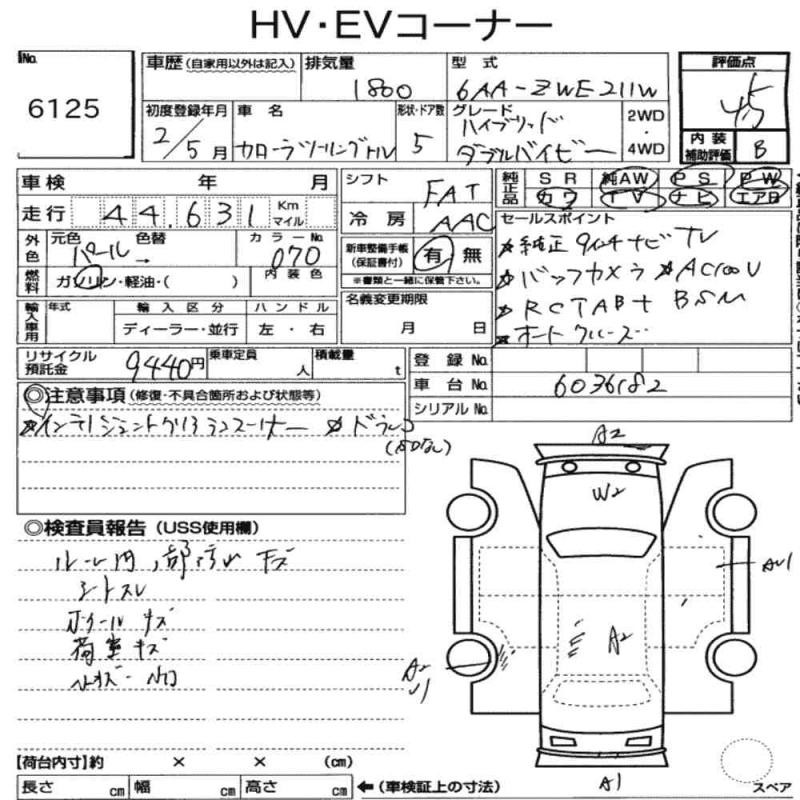 HV・EVコーナー
No.
6125
車歴 (自家用以外は記入)
排気量
1800
型式
6AA-ZWE211W
評価点
4.5
初度登録年月
2/5月
車名
カローラツーリング
形状・ドア数
5
グレード
ハイブリッド
ダブルバイビー
2WD
・
4WD
内装
補助評価
B
車検 年 月
シフト
FAT
純正品
SR 純AW PS PW
カワ TV ナビ エアB
走行 44,631 Km マイル
冷房
AAC
セールスポイント
純正 9インチナビ TV
バックカメラ AC100V
RCTAB+ BSM
オートクルーズ
外色
元色 色替
パール →
カラーNo.
070
新車整備手帳
(保証書付)
有 無
※書類と一緒に保管下さい。
燃料
ガソリン・軽油・( )
内装色
名義変更期限
月 日
輸入車用
年式
輸入区分
ハンドル
ディーラー・並行
左・右
リサイクル
預託金
9440円
乗車定員
人
積載量
t
登録No.
車台No.
6036182
シリアルNo.
◎注意事項 (修復・不具合箇所および状態等)
インテリジェントクリアランスソナー ドラレコ
◎検査員報告 (USS使用欄)
シートスレ
ホイール キズ
荷室 キズ
A2
W2
A2
A2
A1
【荷台内寸】約 × × (cm)
長さ cm 幅 cm 高さ cm
←(車検証上の寸法)
スペア